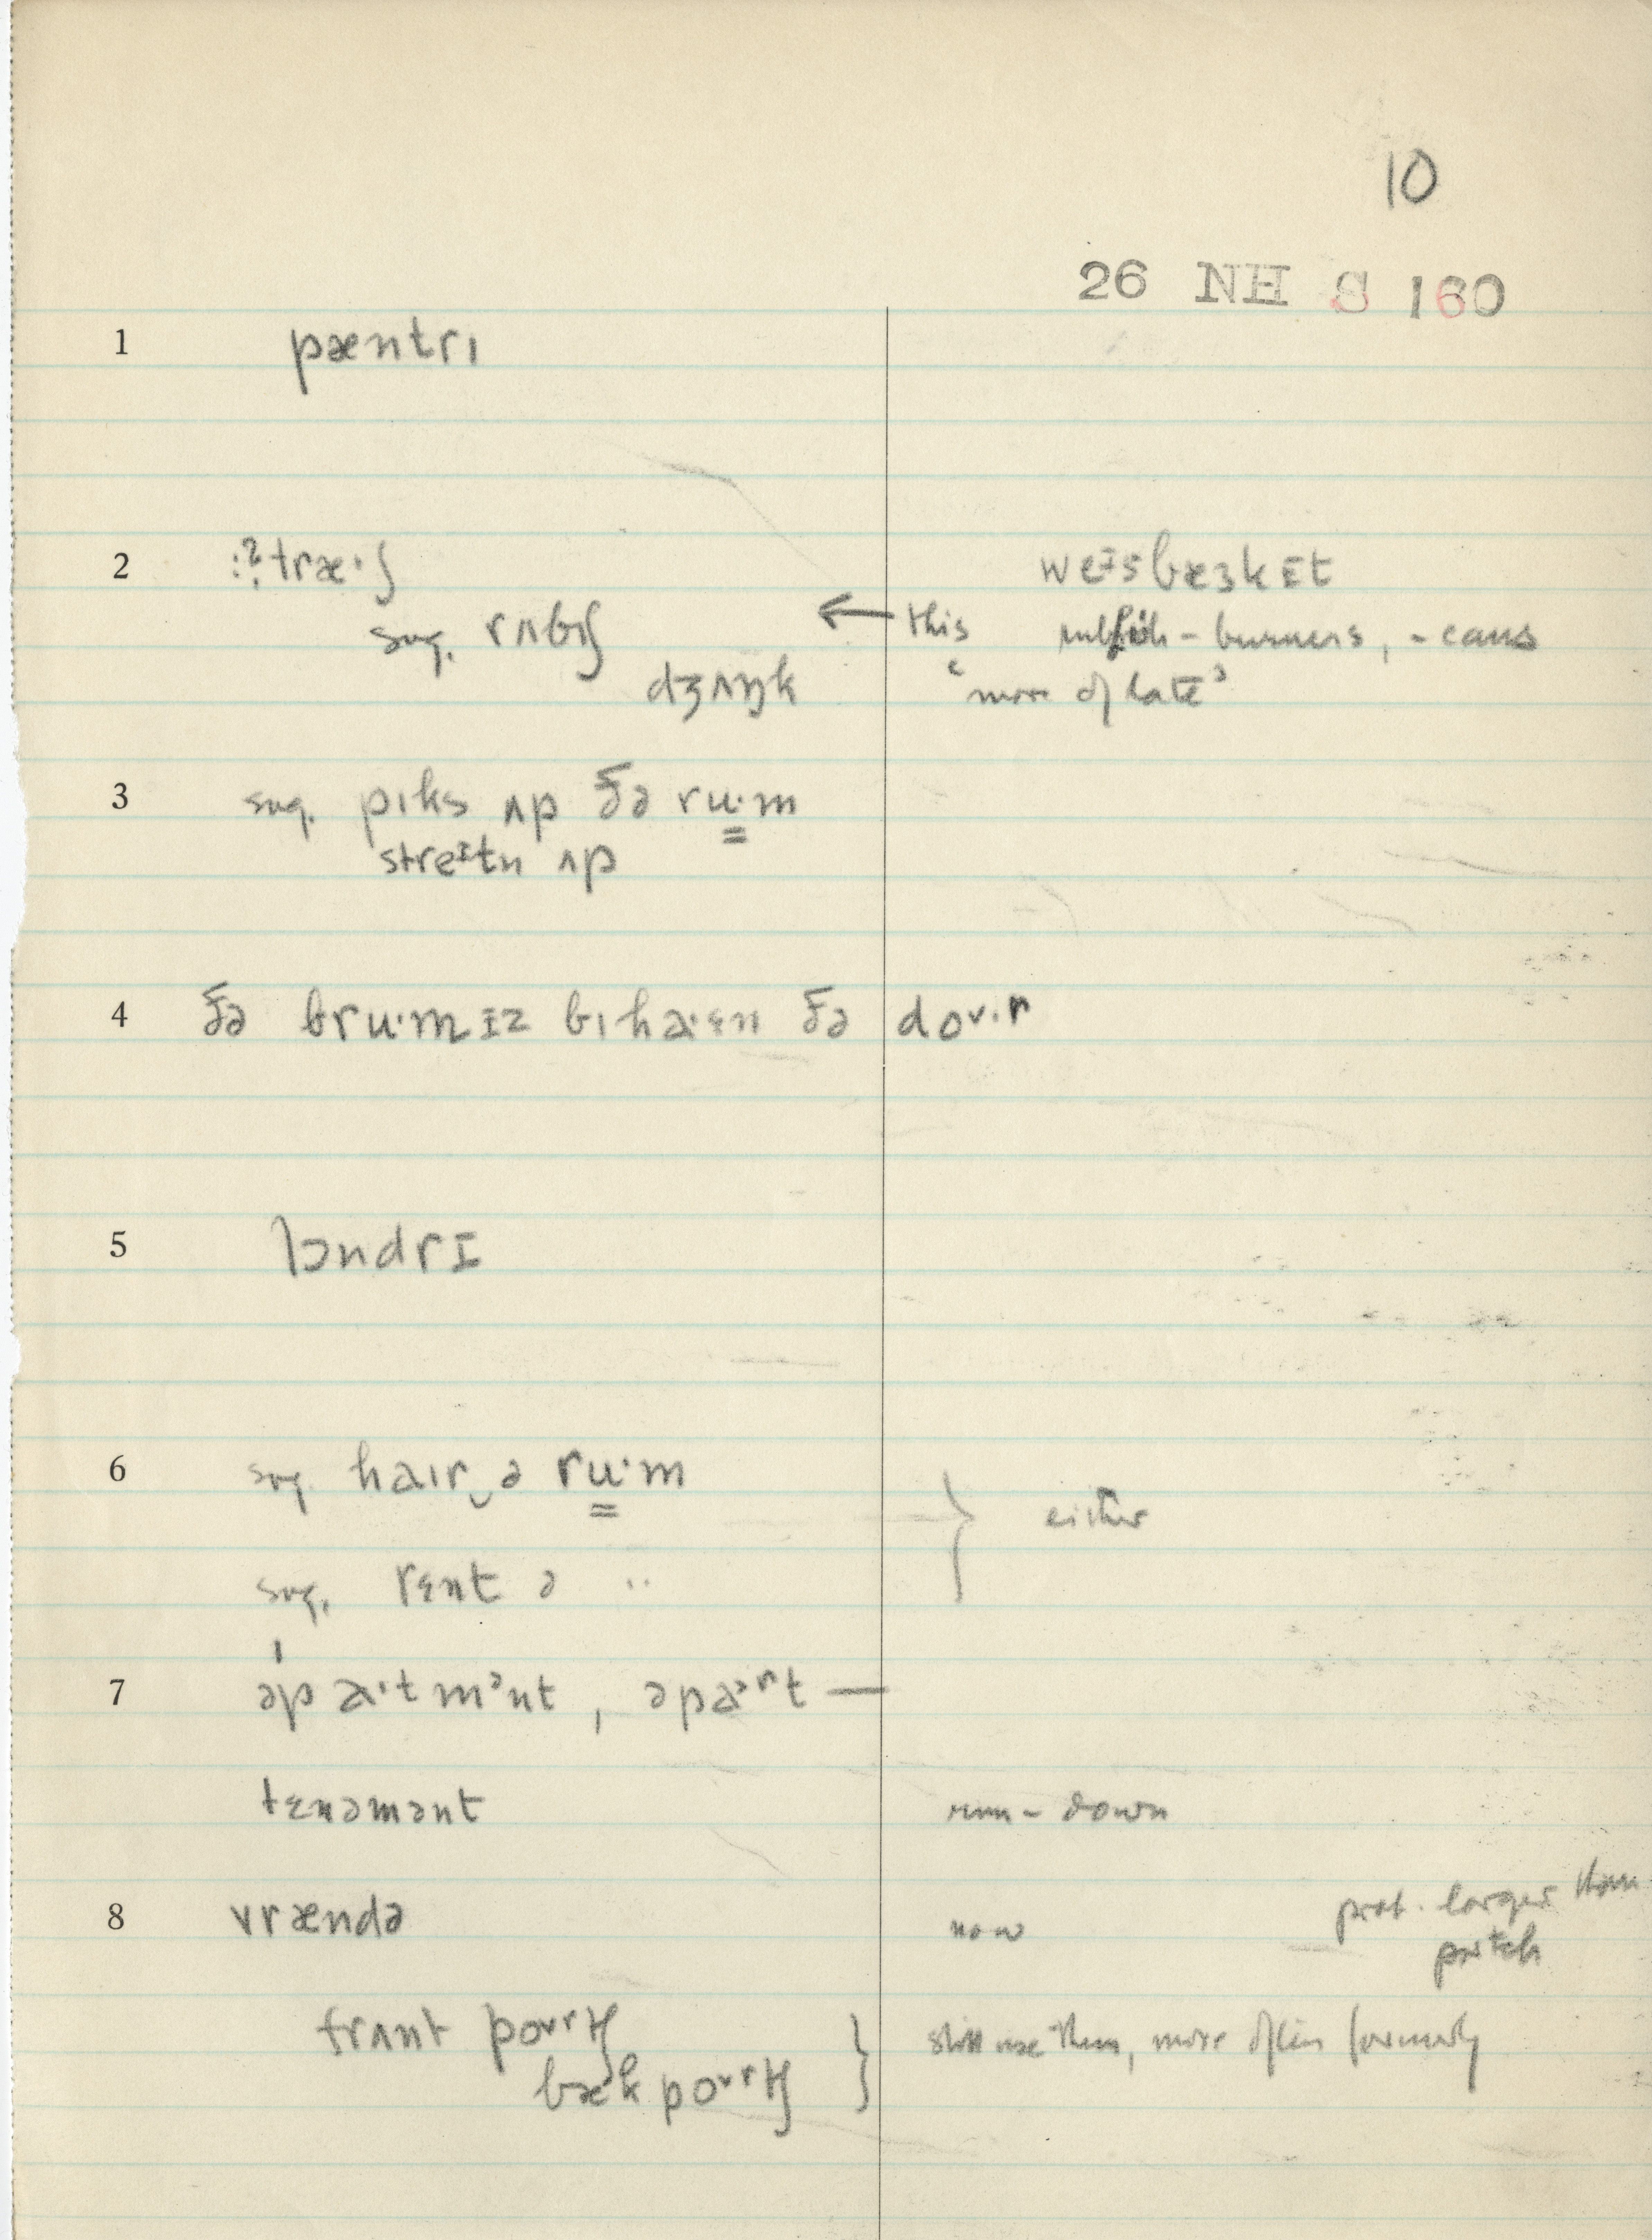 10
26 NH S 160
1 pæntrɪ
2 :?træ·ʃ weɪsbæskɪt
sug. rʌbɪʃ ← this rubbish-burners, -cans
dʒʌŋk "more of late"
3 sug. pɪks ʌp ðə ru·m
streɪtn ʌp
4 ðə bru·mɪz bɪhaɛn ðə doʊ·r
5 lɔndrɪ
6 sug. haɪr‿ə ru·m } either
sug. rɛnt ə ··
7 əpa·tmənt, əpaərt —
tɛnəmənt run-down
8 vrændə now prob. larger than
porch
frʌnt poʊrtʃ } still use them, more often formerly
bæk poʊrtʃ